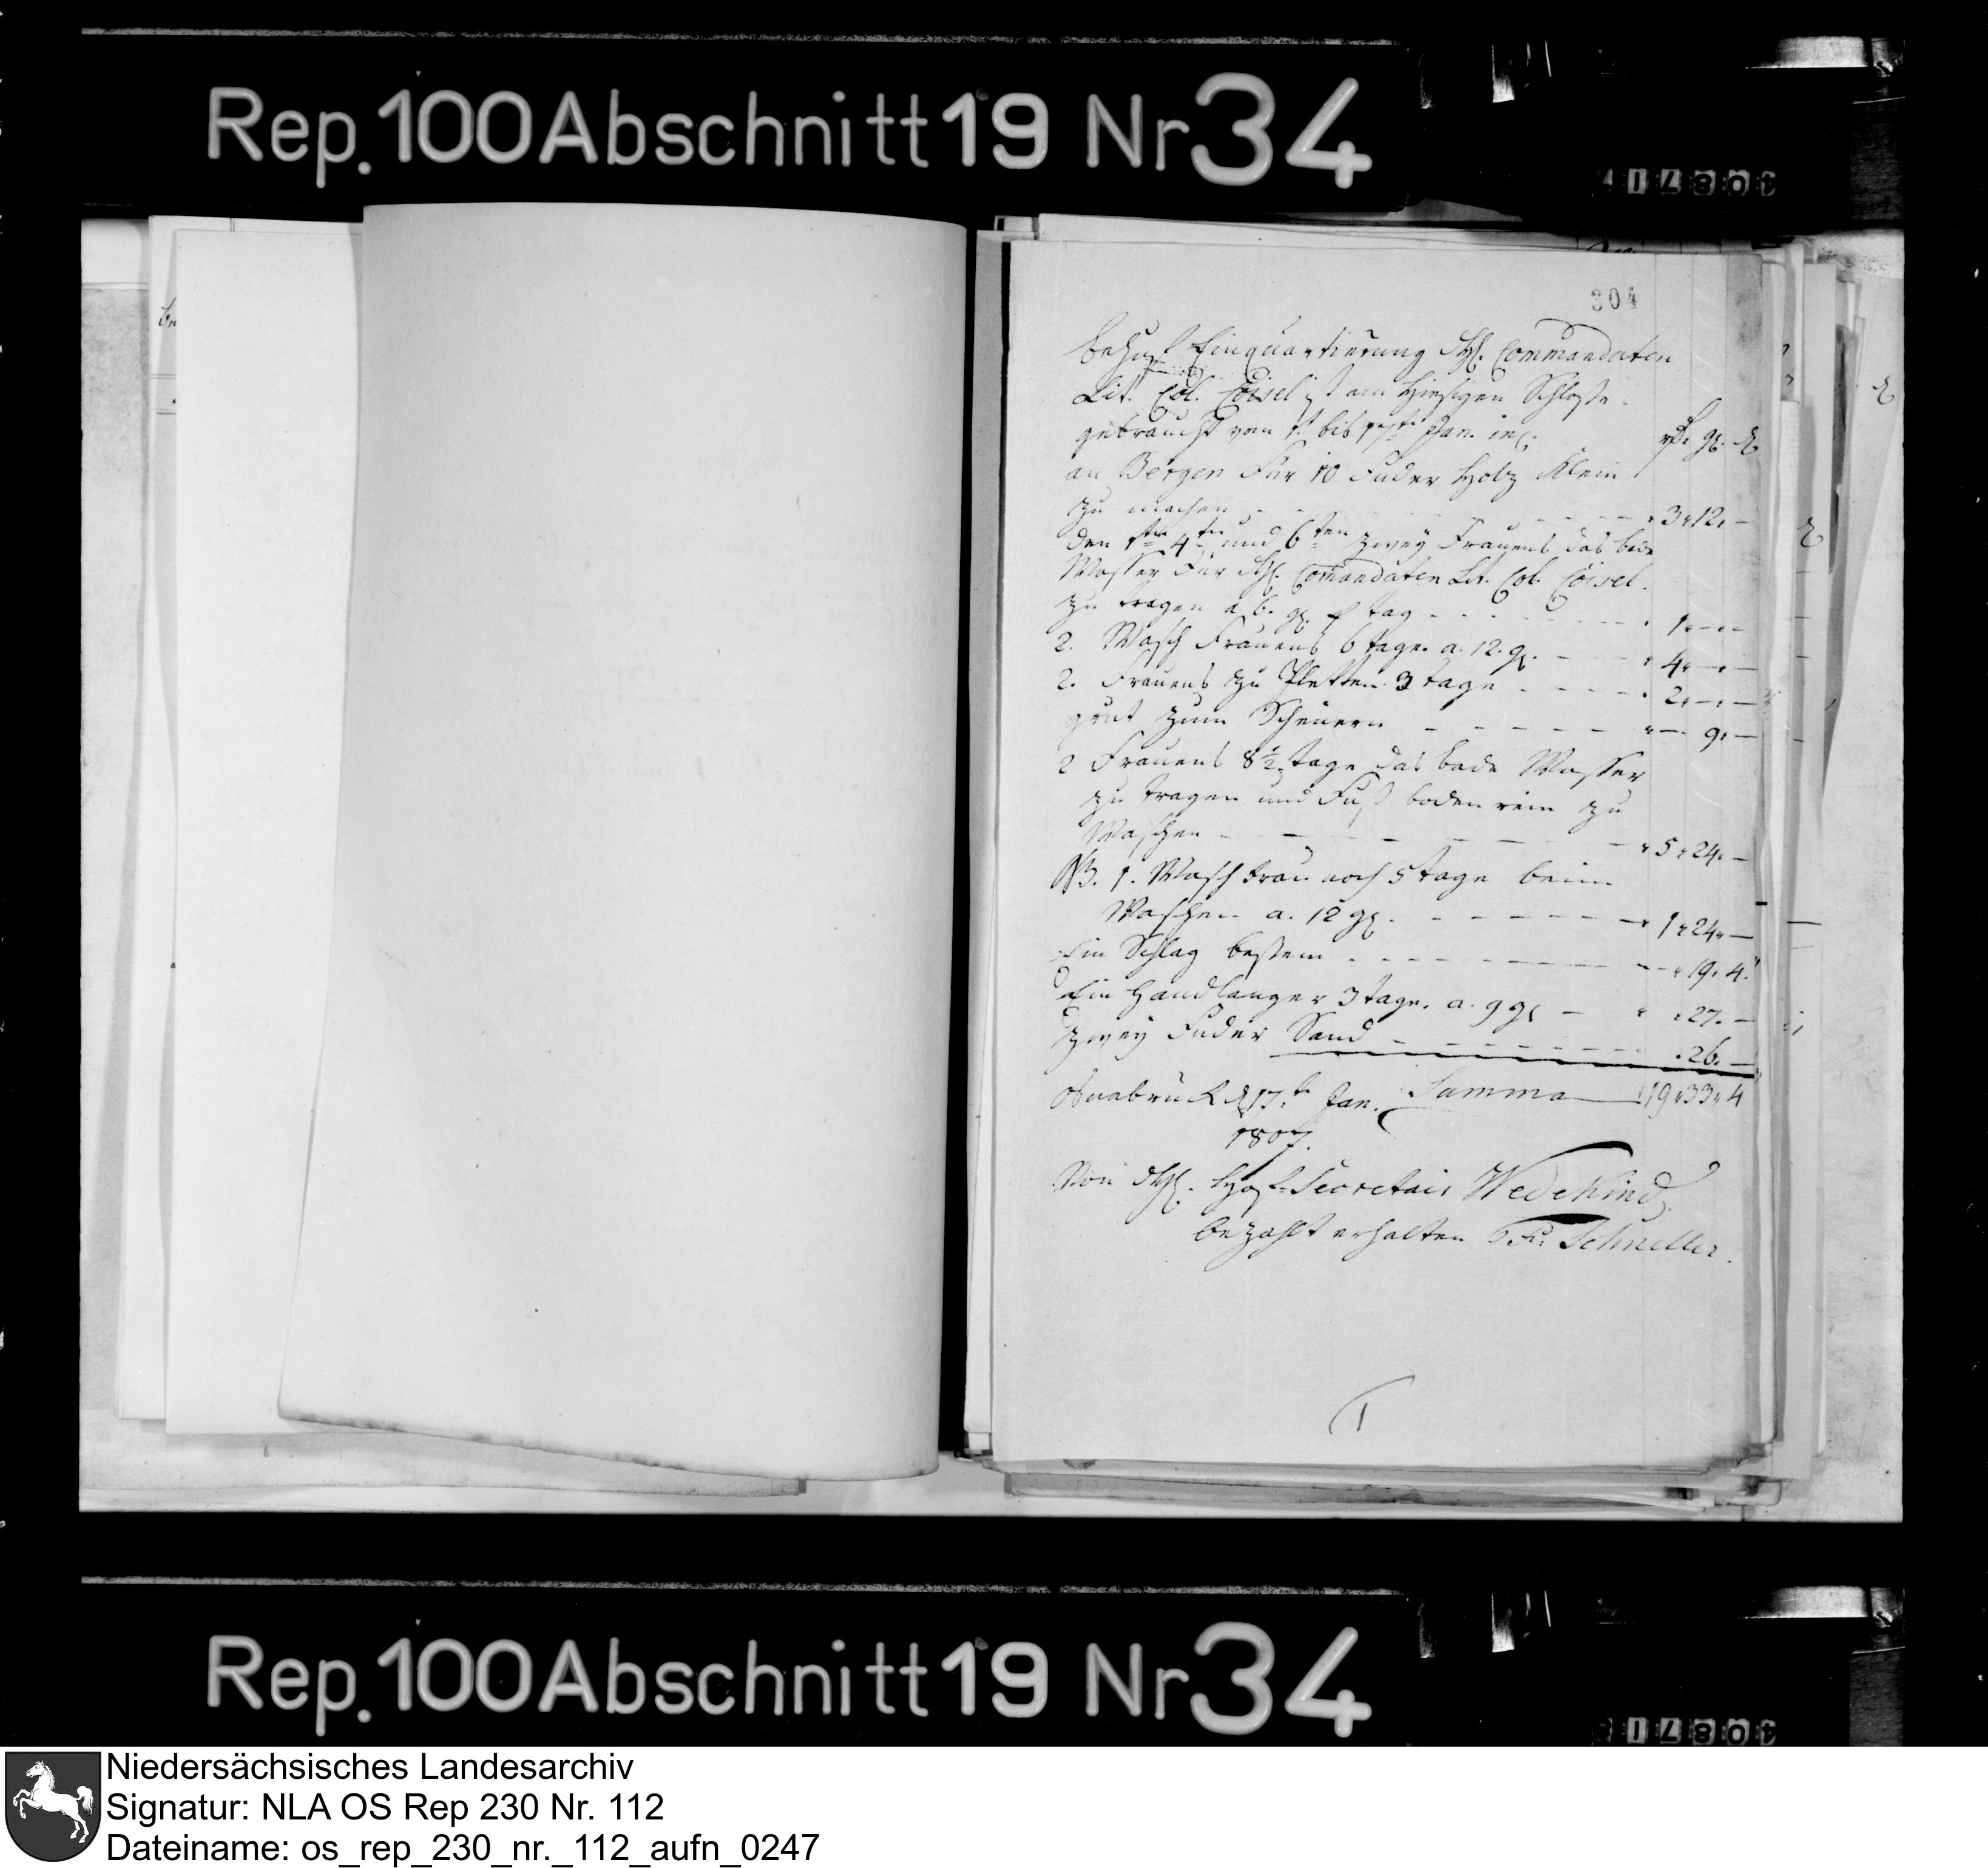 Rep. 100 Abschnitt 19 Nr 34
304
behuf Einquartierung Hh. Commandaten
Lit. Col. Coisel ist am Hiesigen Schloße
gebraucht vom 1t bis Jan. inc.
rth gh d
an Bergen Für 10 Fuder Holz Klein
zu machen - - - 3 " 12 " -
den 1ten 4ten und 6ten zwey Frauens das bade
Wasser Für Hh. Comandaten Lit. Col. Coisel.
zu tragen a 6. gh. p tag - - - 1 " - " -
2. Wasch Frauens 6 tage. a. 12. gh. - - 4 " - " -
2. Frauens zu Pletten 3 tage - - - 2 " - " -
grut zum Scheuern - - - " - 9 " -
2 Frauens 8 1/2 tage das bade Wasser
zu tragen und Fuß boden rein zu
Waschen - - - " 5 " 24 " -
NB. 1. Wasch Frau noch 5 tage beim
Waschen a. 12 gh. - - - 1 " 24 " -
Ein Schlag bessem - - - " 19 " 4
Ein Handlanger 3 tage. a. 9 gh - " " 27 " -
Zwey Fuder Sand - - - " 26 " -
Osnabruck d 17t Jan. Summa 19 " 33 " 4
1807.
Von Hh. Hof-Secretair Wedekind
bezahlt erhalten Fr: Schneller.
Rep. 100 Abschnitt 19 Nr 34
Niedersächsisches Landesarchiv
Signatur: NLA OS Rep 230 Nr. 112
Dateiname: os_rep_230_nr._112_aufn_0247